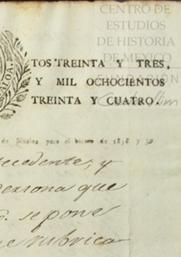 CENTRO DE
ESTUDIOS
DE HISTORIA
DE MEXICO
TOS TREINTA Y TRES,
Y MIL OCHOCIENTOS
TREINTA Y CUATRO.
para el bienio de 1838 y 39
cedente, y
persona que
se pone
rubrica